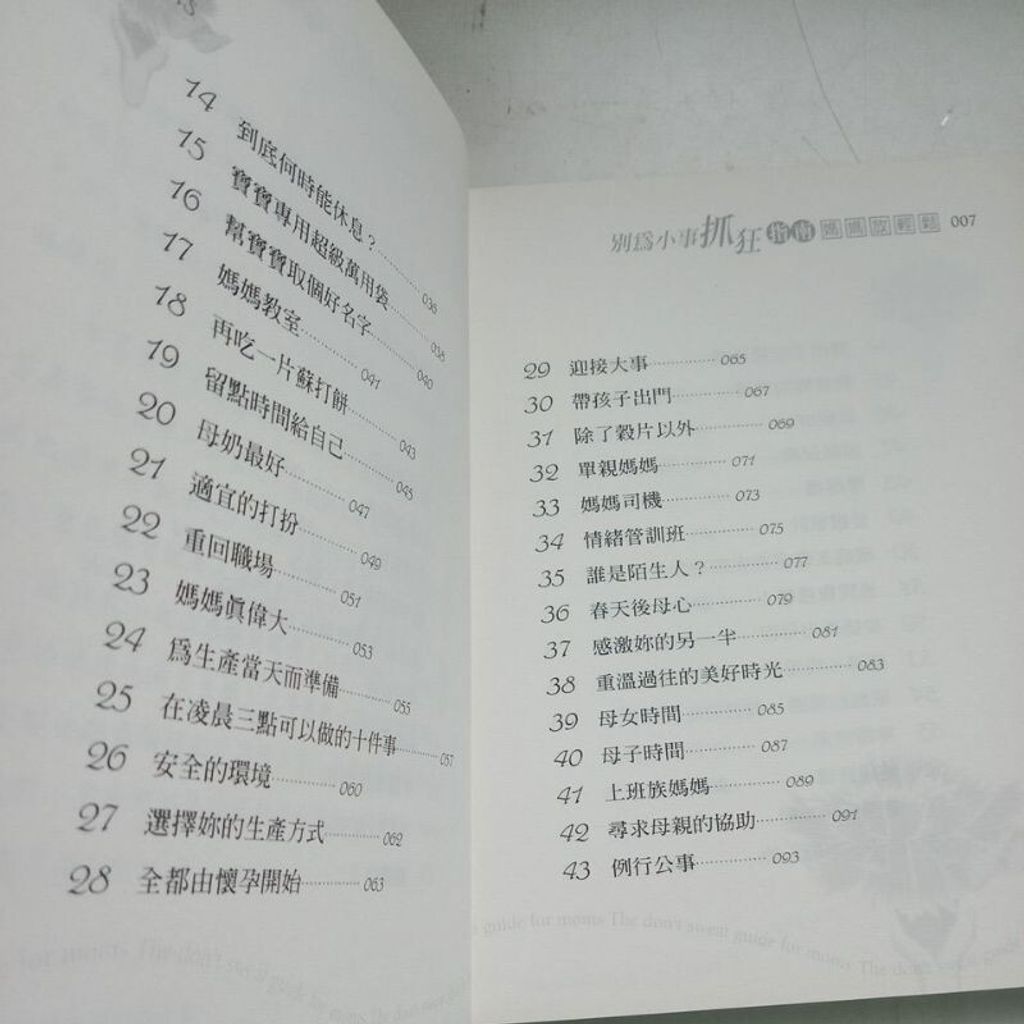 14 到底何時能休息？ 036
15 寶寶專用超級萬用袋 038
16 幫寶寶取個好名字 040
17 媽媽教室 041
18 再吃一片蘇打餅 043
19 留點時間給自己 045
20 母奶最好 047
21 適宜的打扮 049
22 重回職場 051
23 媽媽眞偉大 053
24 爲生產當天而準備 055
25 在凌晨三點可以做的十件事 057
26 安全的環境 060
27 選擇妳的生產方式 062
28 全都由懷孕開始 063
for moms The don't sweat guide for moms The don't sweat
別爲小事抓狂指南媽媽放輕鬆 007
29 迎接大事 065
30 帶孩子出門 067
31 除了穀片以外 069
32 單親媽媽 071
33 媽媽司機 073
34 情緒管訓班 075
35 誰是陌生人？ 077
36 春天後母心 079
37 感激妳的另一半 081
38 重溫過往的美好時光 083
39 母女時間 085
40 母子時間 087
41 上班族媽媽 089
42 尋求母親的協助 091
43 例行公事 093
guide for moms The don't sweat guide for moms The don't sweat guide